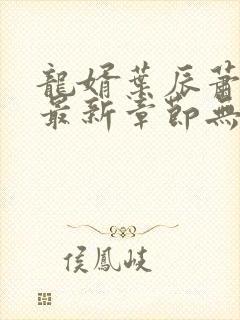 龍婿葉辰蕭
最新章節無
侯鳳岐